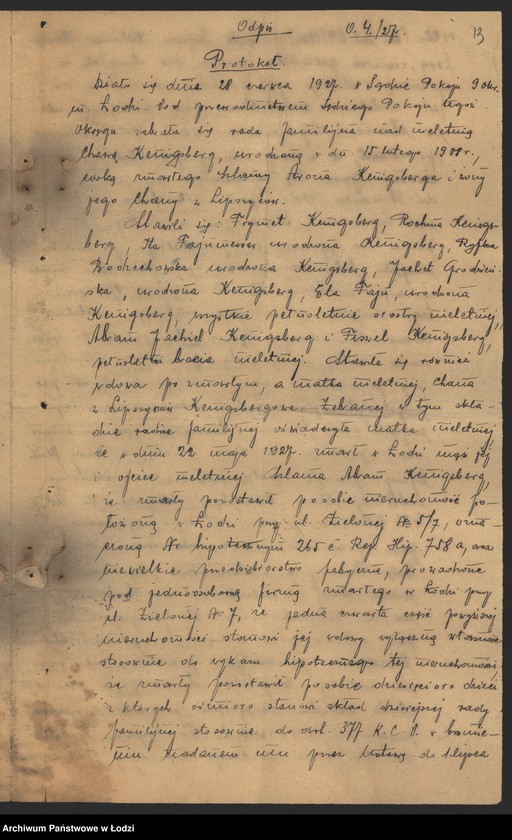 Odpis O. 4./27r. 13
Protokół.
Działo się dnia 28 czerwca 1927. w Sądzie Pokoju 9 okr.
m. Łodzi pod przewodnictwem Sędziego Pokoju tegoż
Okręgu zebrała się rada familijna nad nieletnią
Chaną Kenigsberg, urodzoną w dn. 15 lutego 1908 r.,
córką zmarłego Szlamy Arona Kenigsberga i żony
jego Chany z Lipszyców.
Stawili się: Frymet Kenigsberg, Rochma Kenigs-
berg, Ita Fajnmesser urodzona Kenigsberg, Ryfka
urodzona Kenigsberg, Jachet Grodzień-
ska, urodzona Kenigsberg, Ela Fajn, urodzona
Kenigsberg, wszystkie pełnoletnie siostry nieletniej,
Abram Jachiel Kenigsberg i Fiszel Kenigsberg,
pełnoletni bracia nieletniej. Stawiła się również
wdowa po zmarłym, a matka nieletniej, Chana
z Lipszyców Kenigsbergowa. Zebranej w tym skła-
dzie radzie familijnej oświadczyła matka nieletniej
że w dniu 22 maja 1927. zmarł w Łodzi mąż jej
i ojciec nieletniej Szlama Abram Kenigsberg,
że zmarły pozostawił po sobie nieruchomość po-
łożoną w Łodzi przy ul. Zielonej № 5/7, ozna-
czoną Nr hipotecznym 265 c Rep. Hip. 758 a, oraz
niewielkie przedsiębiorstwo fabryczne, prowadzone
pod jednoosobową firmą zmarłego w Łodzi przy
ul. Zielonej № 7, że jedna czwarta część powyższej
nieruchomości stanowi jej wyłączną własność
stosownie do wykazu hipotecznego tej nieruchomości,
że zmarły pozostawił po sobie dziesięcioro dzieci
z których ośmioro stanowi skład dzisiejszej rady
familijnej stosownie do art. 377 K. C. P. w brzmie-
niu nadanem mu przez Ustawę do 1. lipca
Archiwum Państwowe w Łodzi